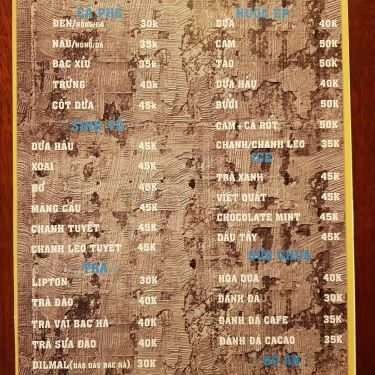 CÀ PHÊ
ĐEN/NÓNG/ĐÁ 30k
NÂU/NÓNG/ĐÁ 35k
BẠC XỈU 35k
TRỨNG 40k
CỐT DỪA 45k
SINH TỐ
DƯA HẤU 45K
XOÀI 45K
BƠ 45K
MÃNG CẦU 45K
CHANH TUYẾT 45K
CHANH LEO TUYẾT 45K
TRÀ
LIPTON 30K
TRÀ ĐÀO 40K
TRÀ VẢI BẠC HÀ 40K
TRÀ SỮA ĐÀO 40K
DILMAL(DÂU ĐÀO BẠC HÀ) 30K
NƯỚC ÉP
DỨA 40K
CAM 50K
TÁO 50K
DƯA HẤU 40K
BƯỞI 50K
CAM+CÀ RỐT 50K
CHANH/CHANH LEO 35K
ICE
TRÀ XANH 45K
VIỆT QUẤT 45K
CHOCOLATE MINT 45K
DÂU TÂY 45K
SỮA CHUA
HOA QUẢ 40K
ĐÁNH ĐÁ 30K
ĐÁNH ĐÁ CAFE 35K
ĐÁNH ĐÁ CACAO 35K
ĐỒ ĂN